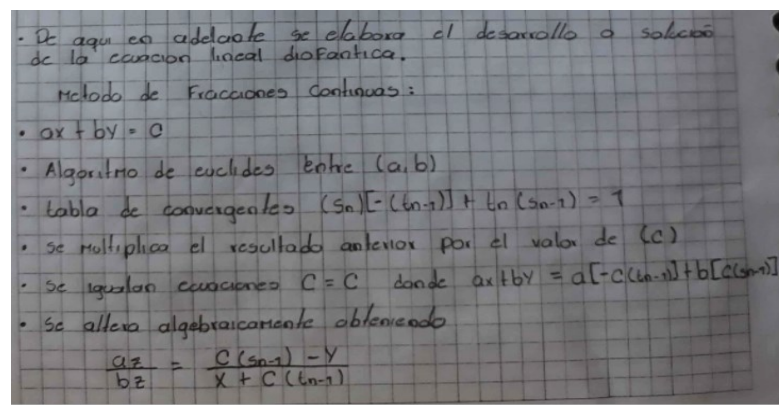 . De aqui en adelante se elabora el desarrollo o solucion
de la ecuacion lineal diofantica.
Metodo de Fracciones Continuas :
• ax + by = C
• Algoritmo de euclides entre (a,b)
• tabla de convergentes (Sn)[-(tn-1)] + tn (Sn-1) = 1
• se multiplica el resultado anterior por el valor de (c)
• se igualan ecuaciones C = C donde ax+by = a[-c(tn-1)]+b[c(sn-1)]
• se altera algebraicamente obteniendo
az/bz = C(sn-1) - y / x + C(tn-1)